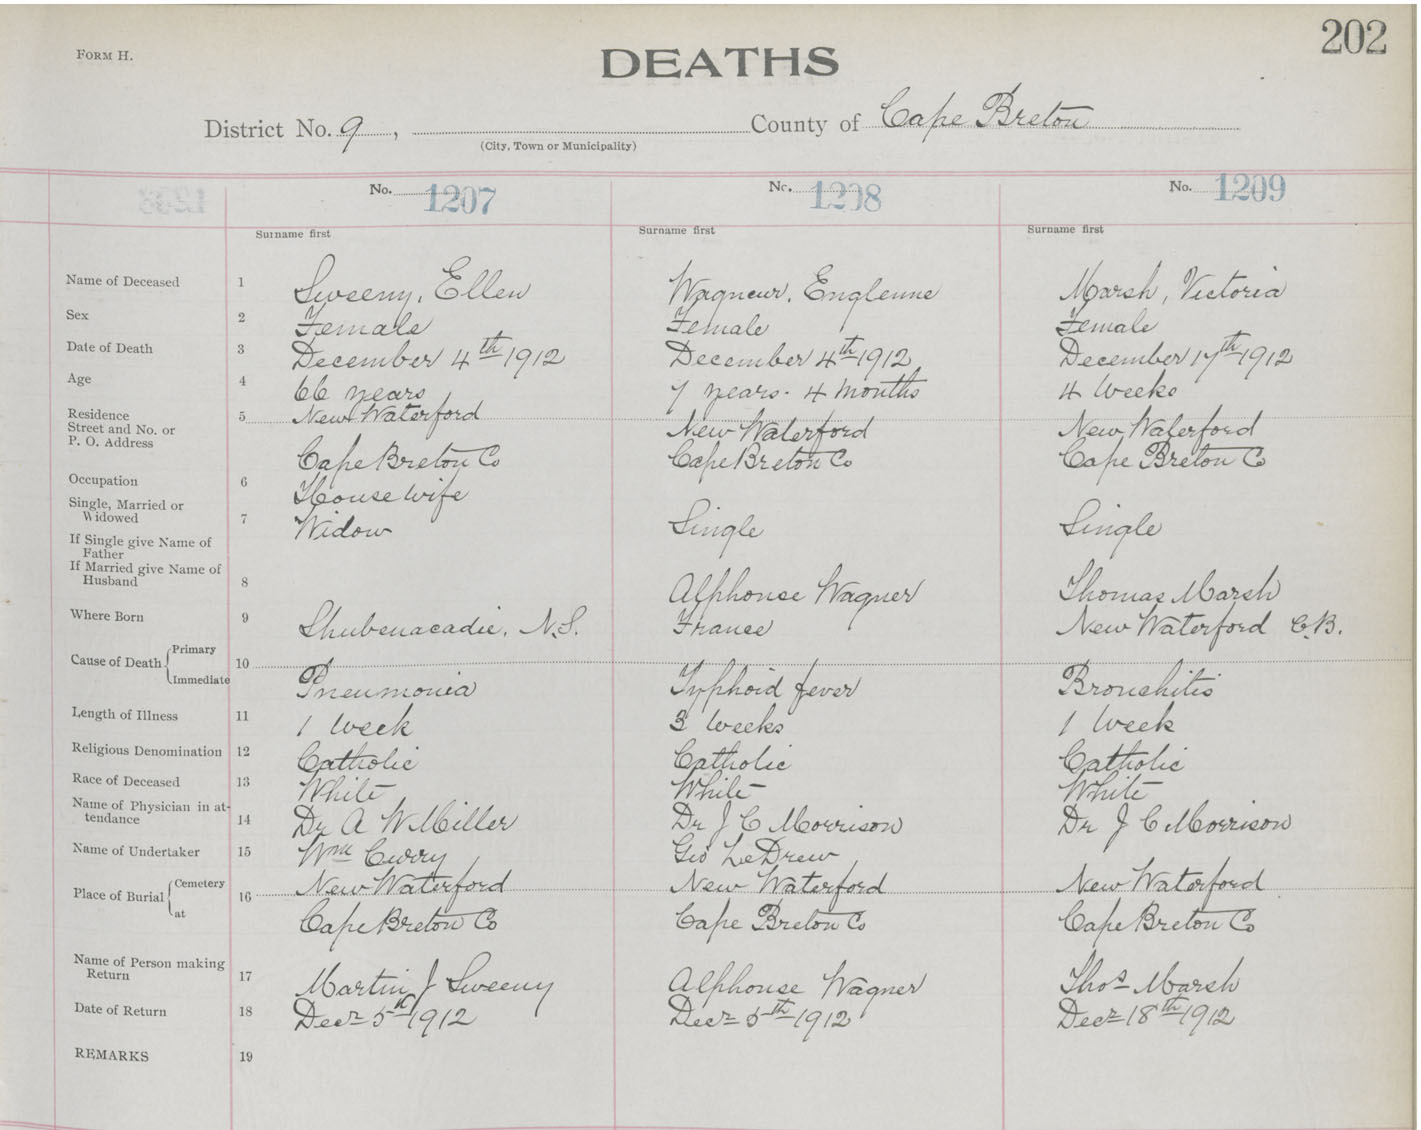 202
FORM H.
DEATHS
District No. 9, County of Cape Breton
(City, Town or Municipality)
No. 1207 No. 1208 No. 1209
Surname first Surname first Surname first
Name of Deceased 1 Sweeny, Ellen Wagneur, Englenne Marsh, Victoria
Sex 2 Female Female Female
Date of Death 3 December 4th 1912 December 4th 1912 December 17th 1912
Age 4 66 years 7 years. 4 months 4 Weeks
Residence 5 New Waterford New Waterford New Waterford
Street and No. or
P. O. Address Cape Breton Co Cape Breton Co Cape Breton Co
Occupation 6 House wife
Single, Married or
Widowed 7 Widow Single Single
If Single give Name of
Father
If Married give Name of
Husband 8 Alphonse Wagner Thomas Marsh
Where Born 9 Shubenacadie, N.S. France New Waterford C.B.
Cause of Death Primary 10
Immediate Pneumonia Typhoid fever Bronchitis
Length of Illness 11 1 Week 3 Weeks 1 Week
Religious Denomination 12 Catholic Catholic Catholic
Race of Deceased 13 White White White
Name of Physician in at-
tendance 14 Dr A W Miller Dr J C Morrison Dr J C Morrison
Name of Undertaker 15 Wm Curry Geo LeDrew
Place of Burial Cemetery 16 New Waterford New Waterford New Waterford
at Cape Breton Co Cape Breton Co Cape Breton Co
Name of Person making
Return 17 Martin J Sweeny Alphonse Wagner Thos Marsh
Date of Return 18 Decr 5th 1912 Decr 5th 1912 Decr 18th 1912
REMARKS 19